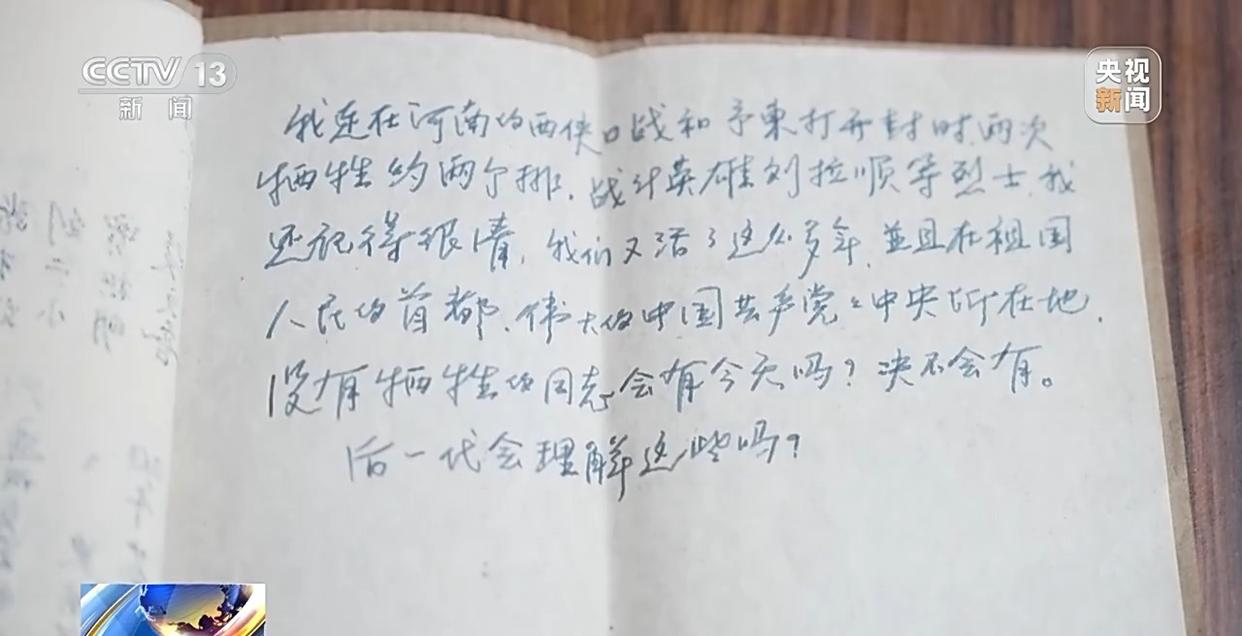 CCTV 13
新闻
央视
新闻
我连在河南的西侠口战和予東打开封时.两次
牺牲约两个排.战斗英雄刘拉顺等烈士.我
还记得很清，我们又活了这么多年.並且在祖国
人民的首都.伟大的中国共产党党中央所在地.
没有牺牲的同志会有今天吗？决不会有。
后一代会理解这些吗？